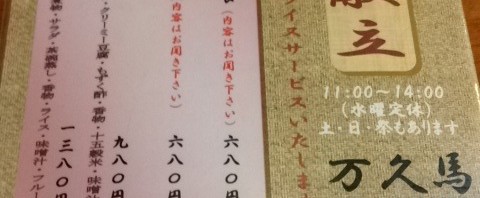 献立
11:00〜14:00
(水曜定休)
土・日・祭もあります
万久馬
イスサービスいたしま
(内容はお聞き下さい)
六八〇円
(内容はお聞き下さい)
六八〇円
・クリーミー豆腐・もずく酢・香物・十五穀米・味噌汁
九八〇円
煮物・サラダ・茶碗蒸し・香物・ライス・味噌汁・フルー
一三八〇円